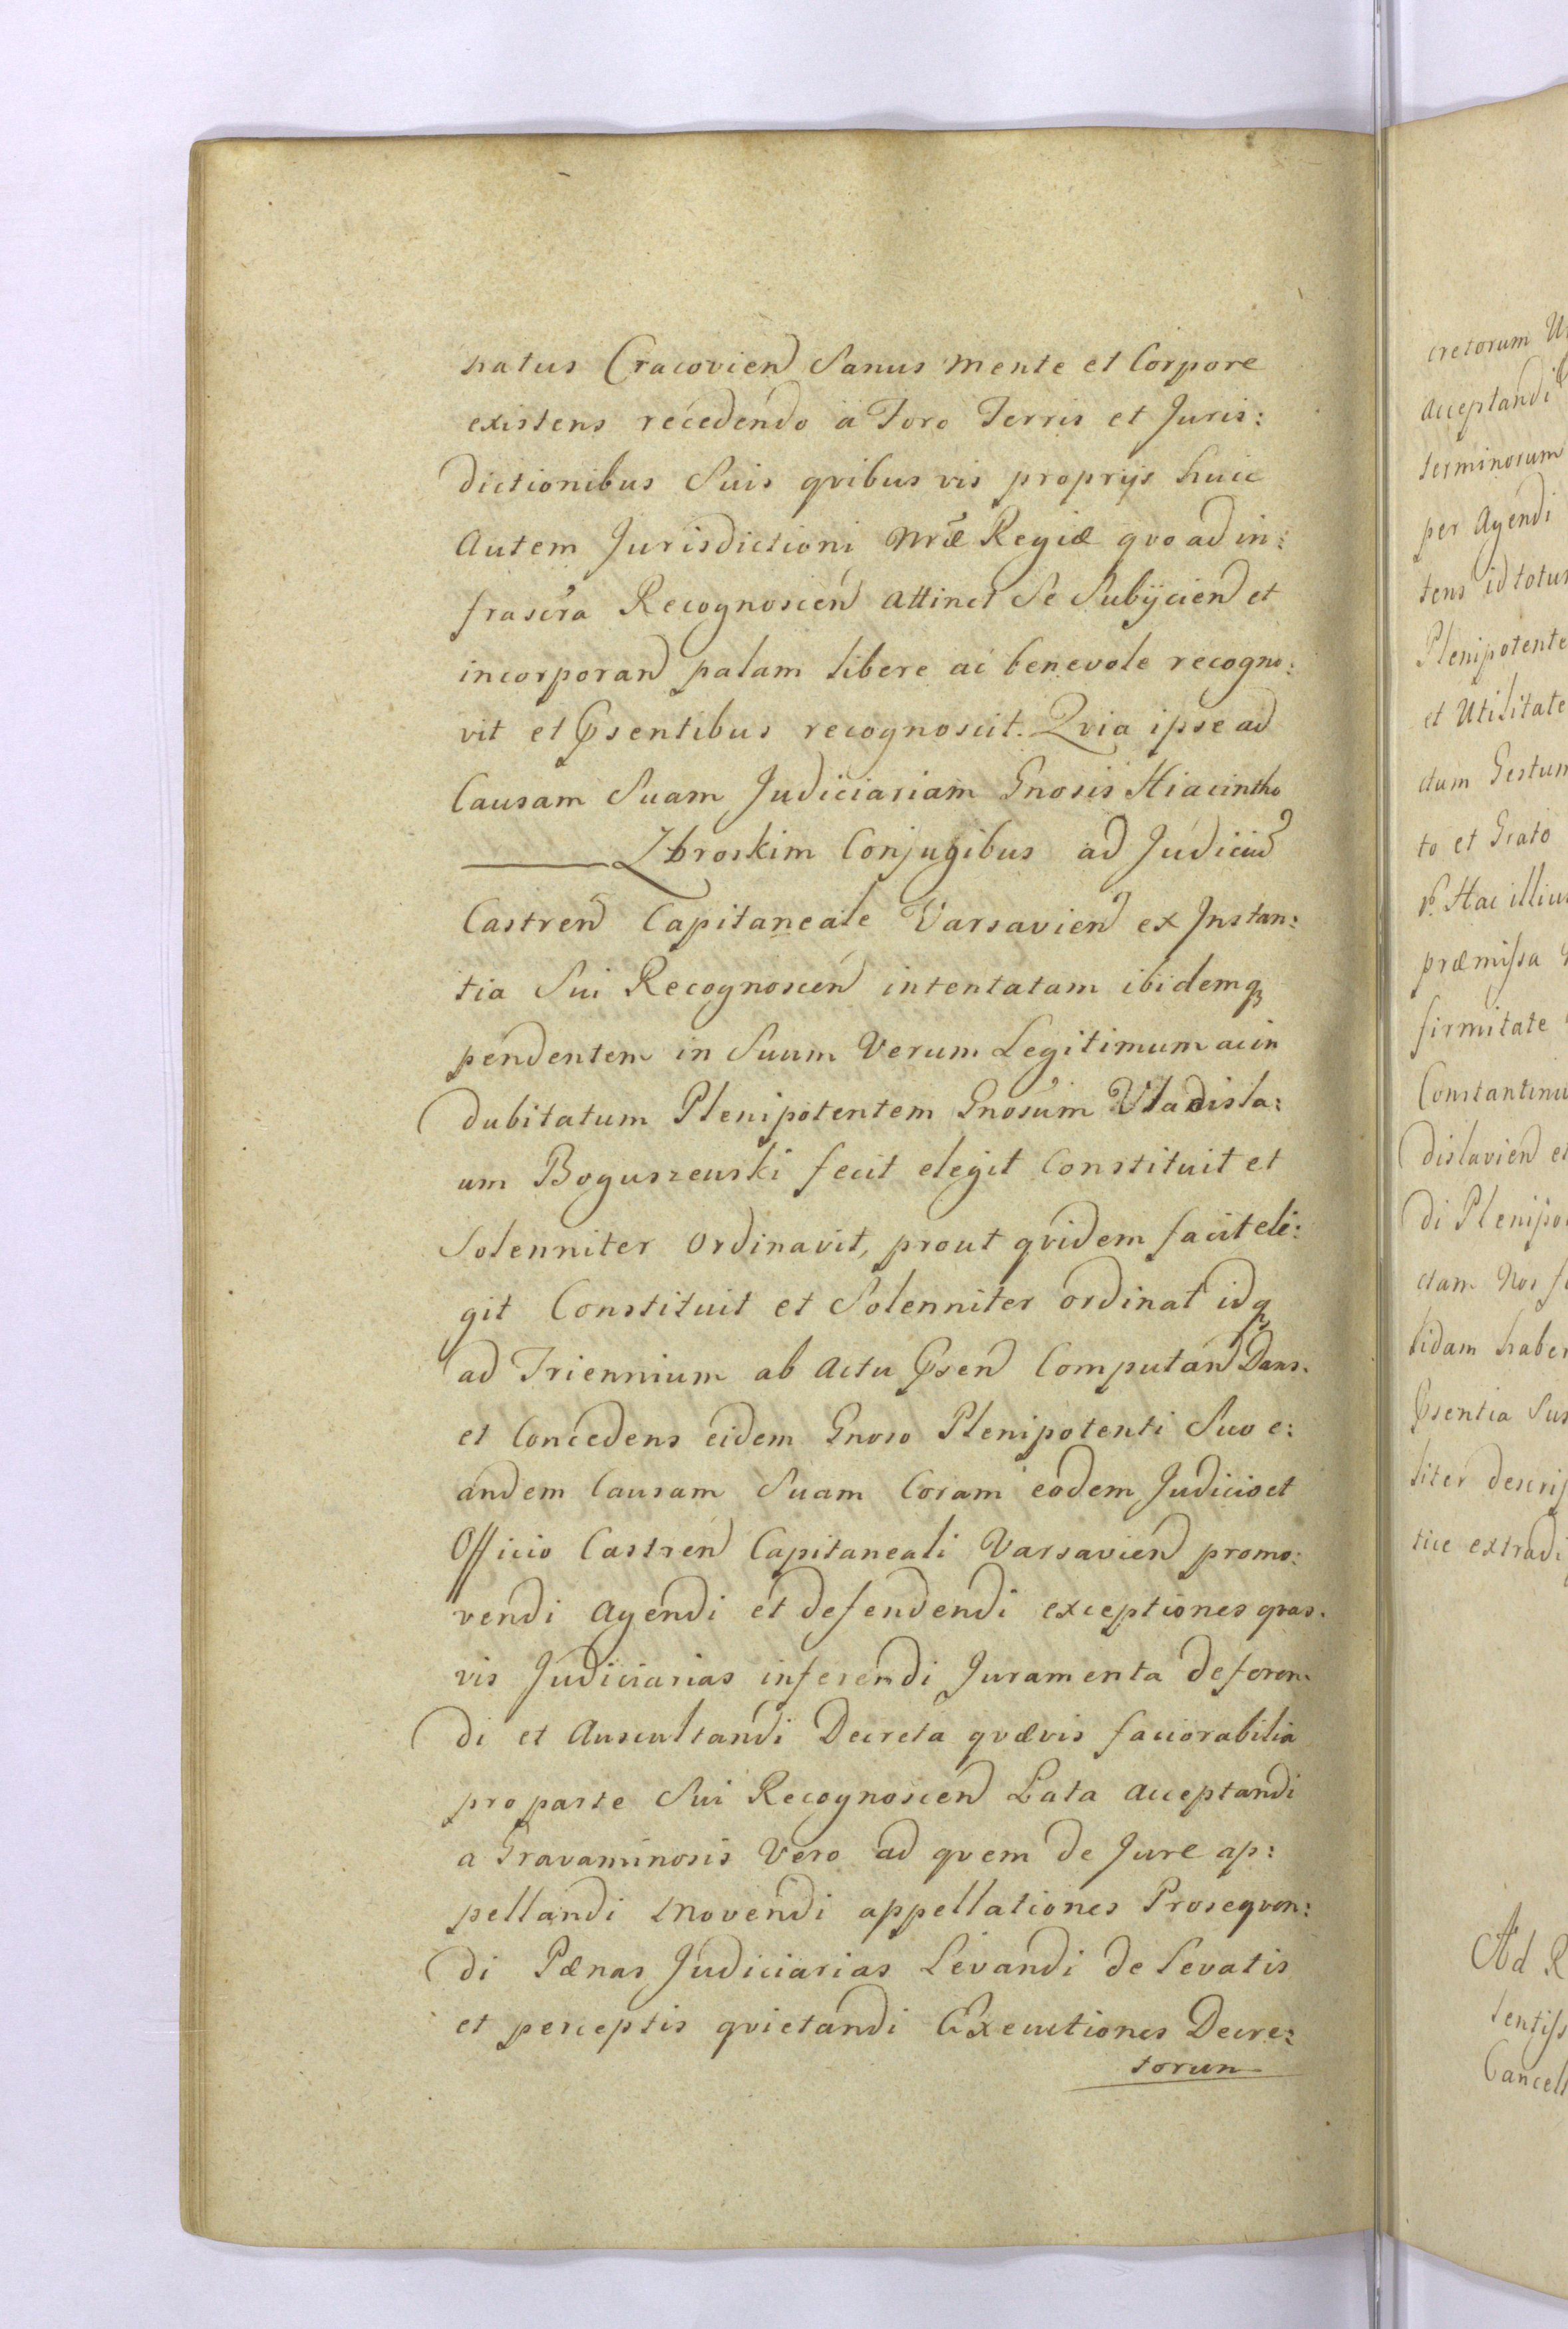 natus Cracovien Sanus mente et Corpore
existens recedendo a Foro Terris et Juris:
dictionibus Suis qvibus vis proprijs huic
Autem Jurisdictioni Nrae Regiæ qvo ad in:
frascra Recognoscen attinet Se Subijcien et
incorporan palam libere ac benevole recogno:
vit et Psentibus recognoscit. Qvia ipse ad
Causam Suam Judiciariam Gnosis Hiacintho
Zbroskim Conjugibus ad Judiciu
Castren Capitaneale Varsavien ex Instan:
tia Sui Recognoscen intentatam ibidemq
pendentem in Suum Verum Legitimum ac in
dubitatum Plenipotentem Gnosum Vladisla:
um Boguszewski fecit elegit Constituit et
Solenniter Ordinavit, prout qvidem facit eli:
git Constituit et Solenniter ordinat idq
ad Triennium ab Actu Psen Computan Dans.
et Concedens eidem Gnoso Plenipotenti Suo e:
andem Causam Suam Coram eodem Judicio et
Officio Castren Capitaneali Varsavien promo:
vendi Agendi et defendendi exceptiones qvas.
vis Judiciarias inferendi Juramenta deferen.
di et Auscultandi Decreta qvævis favorabilia
pro parte Sui Recognoscen Lata Acceptandi
a Gravaminosis Vero ad qvem de Jure ap:
pellandi movendi appellationes Proseqven:
di Pænas Judiciarias Levandi de Levatis
et perceptis qvietandi Executiones Decre:
torum
cretorum
Acceptandi
terminorum
per Agendi
tens id totum
Plenipotente
et Utilitate
dum Gestum
to et Grato
Hac illius
præmissa
firmitate
Constantinu
dislavien et
di Plenipo
ctam Nos
lidam haber
Psentia Sus
liter descrip
tice extradi
Ad R
tentiss
Cancell